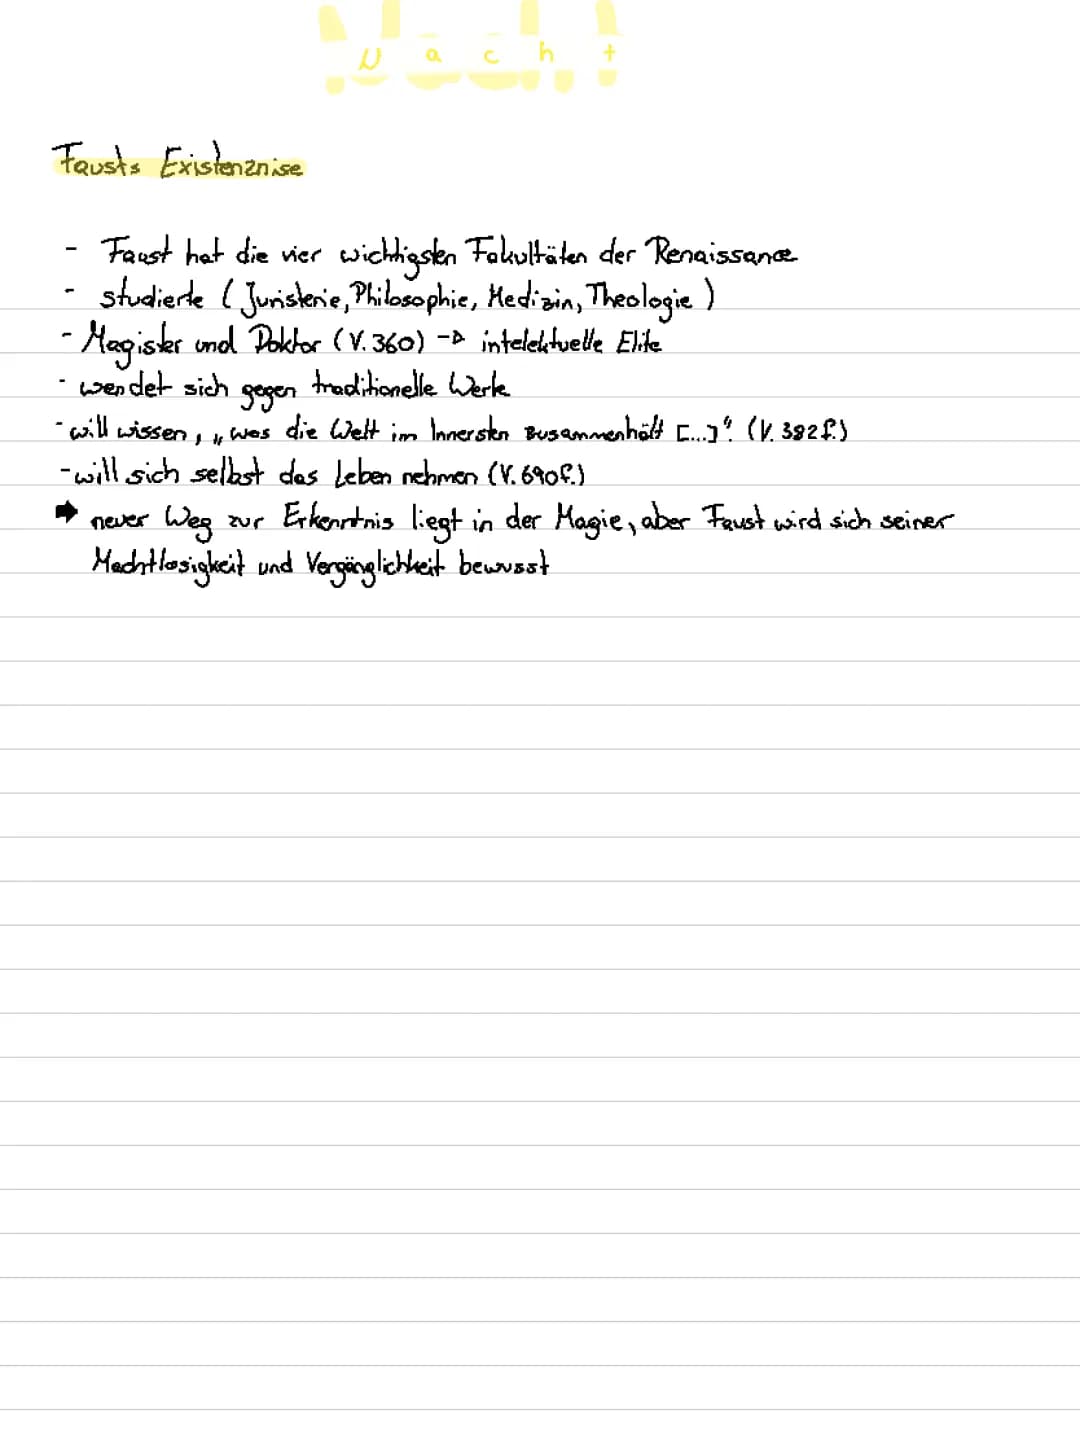 Nacht
Fausts Existenznise
- Faust hat die vier wichtigsten Fakultäten der Renaissance
- studierte (Juristerie, Philosophie, Medizin, Theologie)
- Magister und Doktor (V. 360) → intelektuelle Elite
- wendet sich gegen traditionelle Werke
- will wissen, „was die Welt im Innersten zusammenhält [...]". (V. 382f.)
- will sich selbst das Leben nehmen (V. 690f.)
➡ neuer Weg zur Erkenntnis liegt in der Magie, aber Faust wird sich seiner
Machtlosigkeit und Vergänglichkeit bewusst